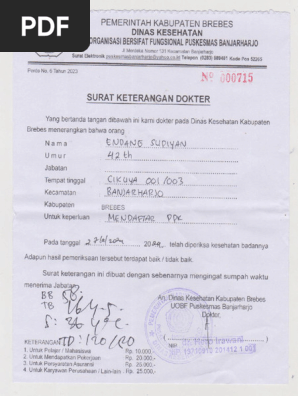 PDF
PEMERINTAH KABUPATEN BREBES
DINAS KESEHATAN
ORGANISASI BERSIFAT FUNGSIONAL PUSKESMAS BANJARHARJO
Perda No. 6 Tahun 2023
No 000715
SURAT KETERANGAN DOKTER
Yang bertanda tangan dibawah ini kami dokter pada Dinas Kesehatan Kabupaten
Brebes menerangkan bahwa orang
Nama ENDANG SUDIYAN
Umur 42 th
Jabatan
Tempat tinggal CIKUYA 001/003
Kecamatan BANJARHARJO
Kabupaten BREBES
Untuk keperluan MENDAFTAR PPK
Pada tanggal telah diperiksa kesehatan badannya
Adapun hasil pemeriksaan tersebut terdapat baik / tidak baik.
Surat keterangan ini dibuat dengan sebenarnya mengingat sumpah waktu
menerima Jabatan
An. Dinas Kesehatan Kabupaten Brebes
UOBF Puskesmas Banjarharjo
Dokter,
BB
TB
KETERANGAN
1. Untuk Pelajar / Mahasiswa Rp. 10.000,-
2. Untuk Mendapatkan Pekerjaan Rp. 20.000,-
3. Untuk Persyaratan Asuransi Rp. 25.000,-
4. Untuk Karyawan Perusahaan / Lain-lain Rp. 25.000,-
NIP